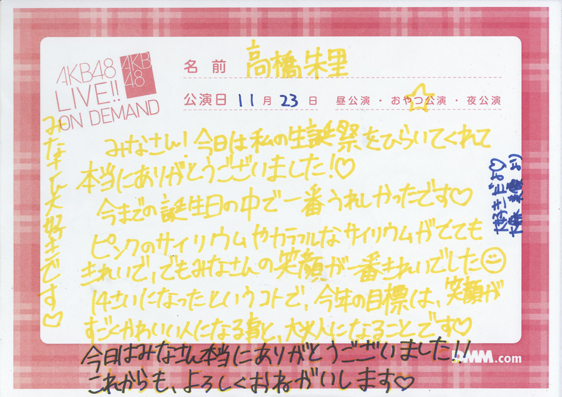 AKB48
LIVE!!
ON DEMAND
AKB
48
名前 高橋朱里
公演日 11月23日 昼公演・おやつ公演・夜公演
みなさん!今日は私の生誕祭をひらいてくれて
本当にありがとうございました!♡
今までの誕生日の中で一番うれしかったです♡
ピンクのサイリウムやカラフルなサイリウムがとても
きれいで、でもみなさんの笑顔が一番きれいでした☺
14さいになったというコトで、今年の目標は、笑顔が
すごくかわいい人になる事と、大人になることです♡
今日はみなさん本当にありがとうございました!!
これからも、よろしくおねがいします♡
みなさん大好きです♡
DMM.com